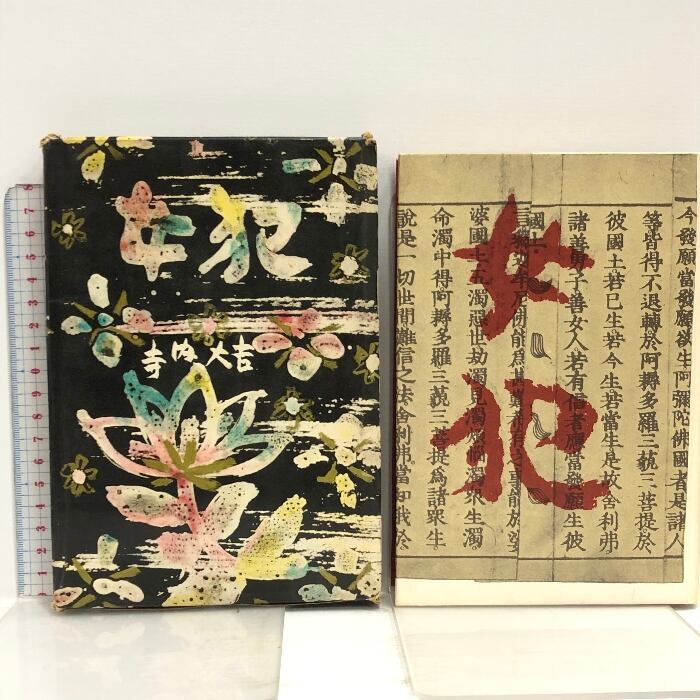 女犯
寺内大吉
女犯
今發願當發願欲生阿彌陀佛國者是諸人
等皆得不退轉於阿耨多羅三藐三菩提於
彼國土若已生若今生若當生是故舍利弗
諸善男子善女人若有信者應當發願生彼
國土
佛能爲甚難希有之事能於娑
婆國土五濁惡世劫濁見濁煩惱濁衆生濁
命濁中得阿耨多羅三藐三菩提爲諸衆生
說是一切世間難信之法舍利弗當知我於